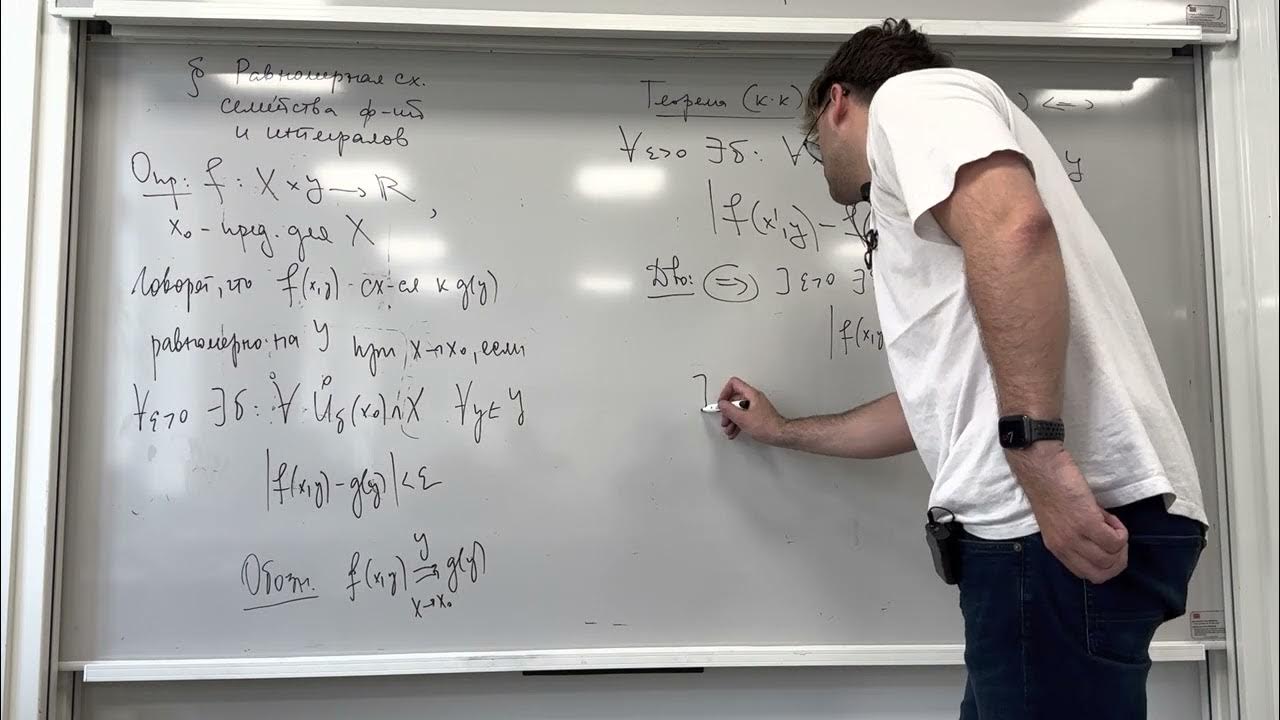 § Равномерная сх.
семейства ф-ий
и интегралов
Опр: f : X × Y → ℝ,
x₀ - пред. для X
Говорят, что f(x,y) - сх-ся к g(y)
равномерно на Y при x→x₀, если
∀ε>0 ∃δ: ∀ Ů_δ(x₀)∩X ∀y∈Y
|f(x,y) - g(y)| < ε
Обозн. f(x,y) ⇉ g(y)
Y
x→x₀
Теорема (к.к) <=>
∀ε>0 ∃δ: ∀
Y
|f(x',y) - f(
Дво: (=>) ] ε>0 ∃
|f(x,y
]